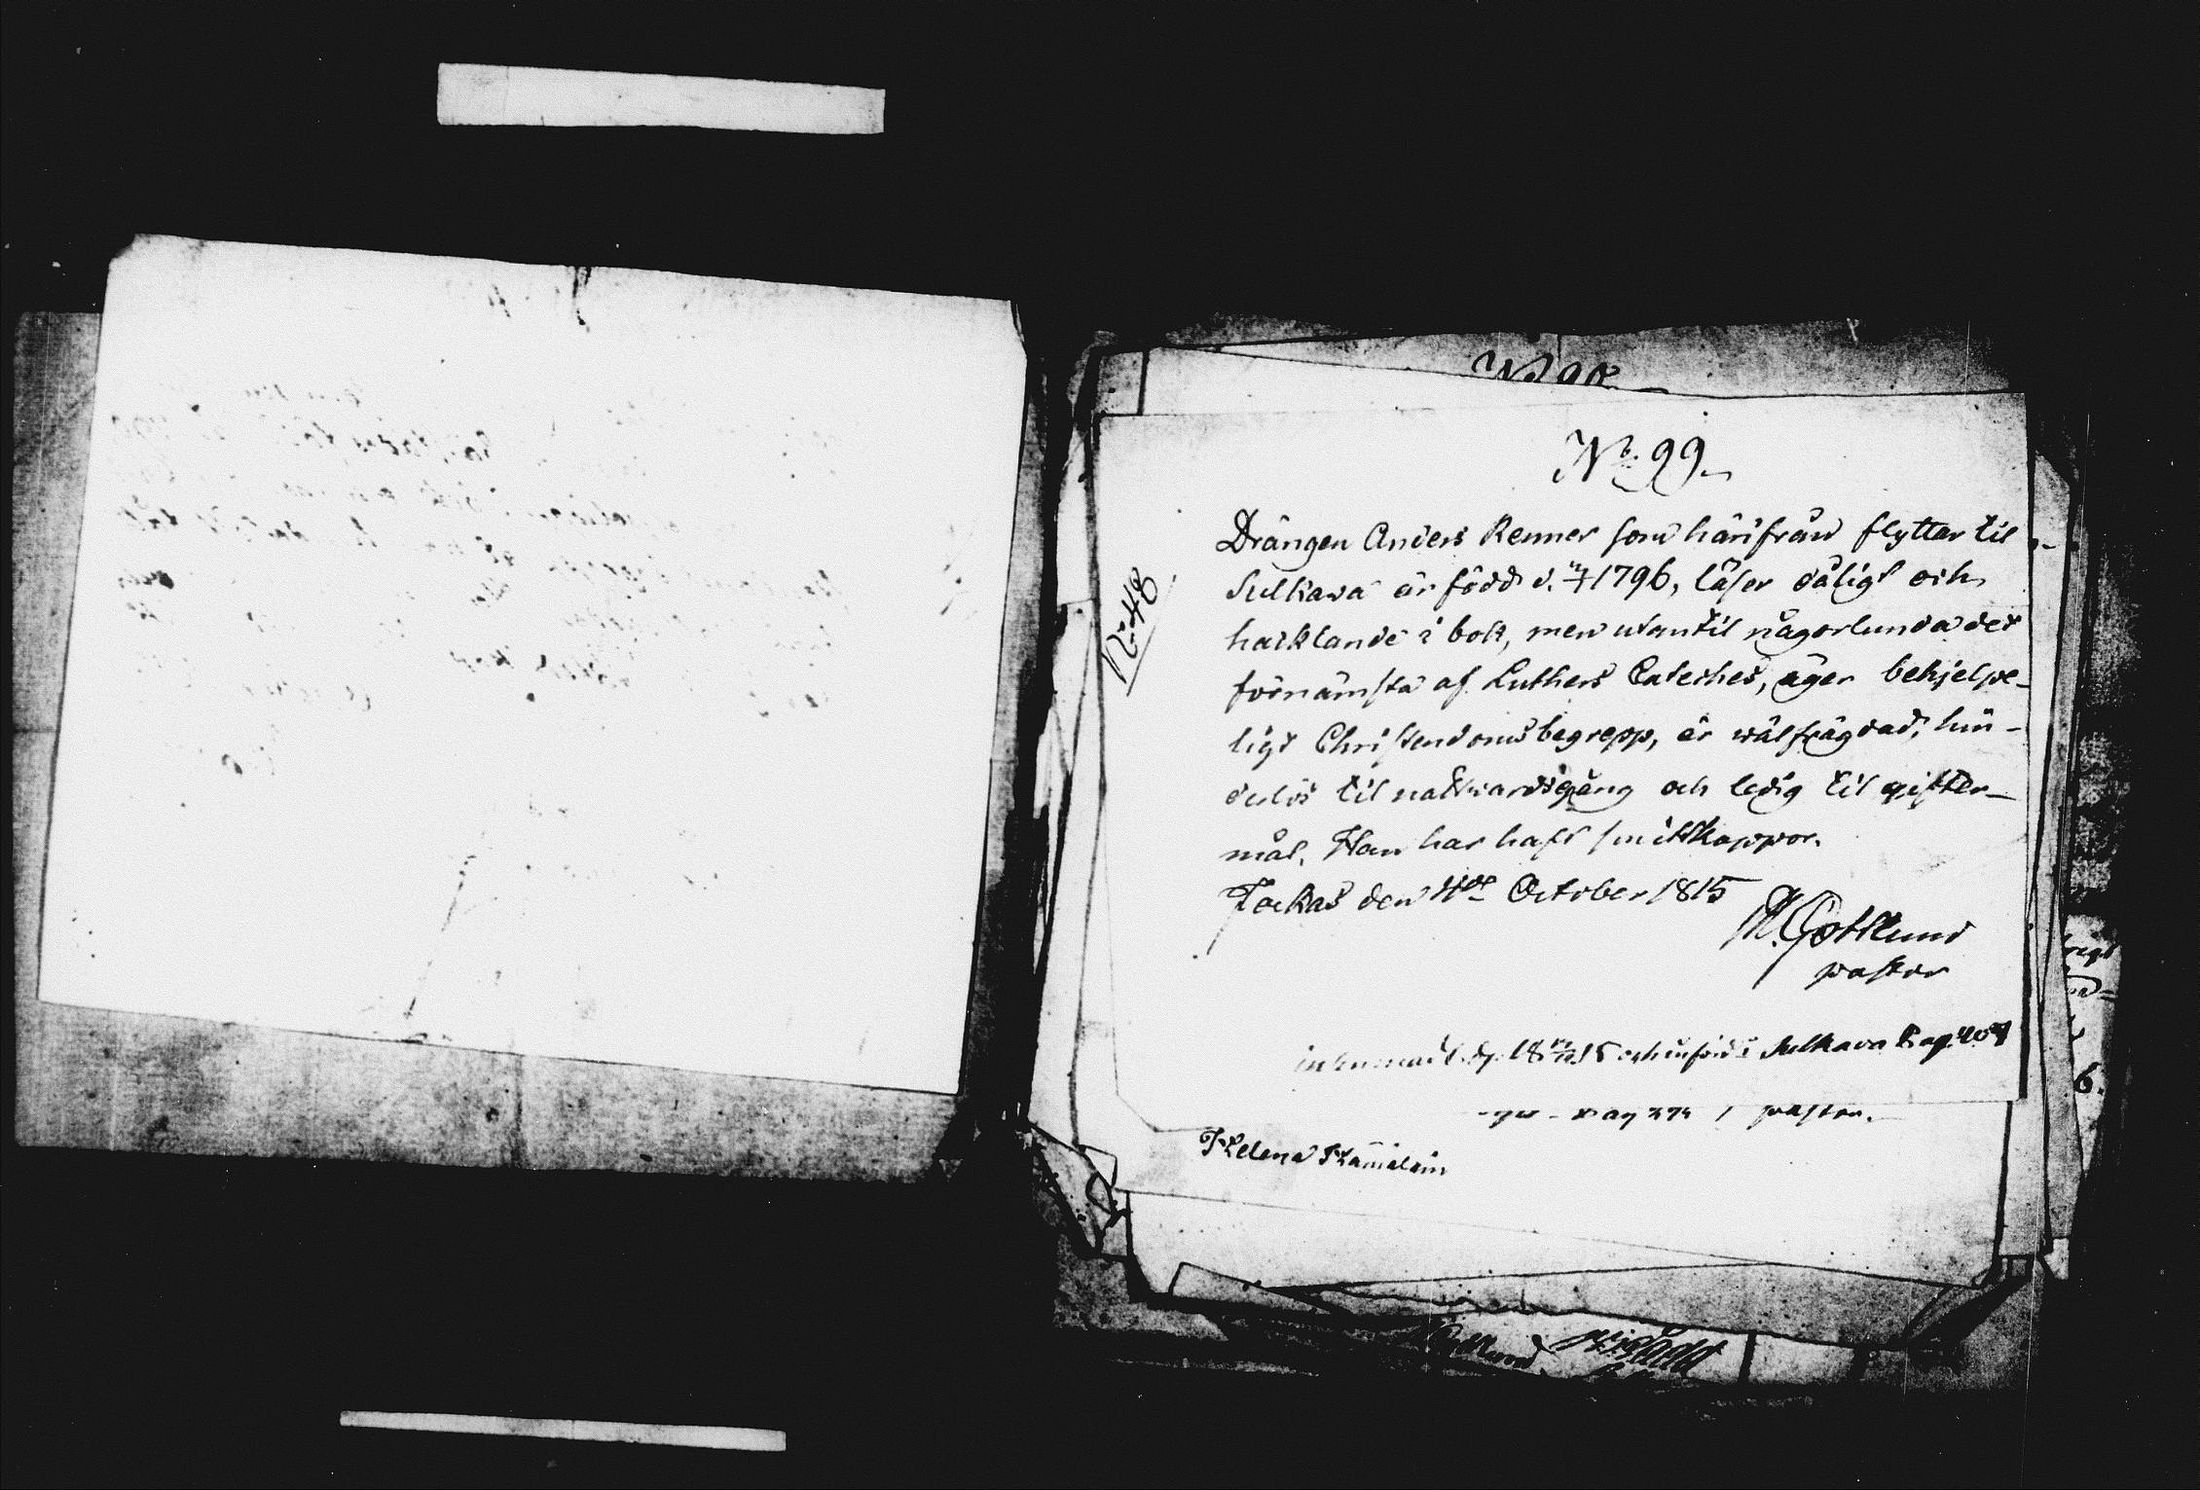 No 99.
No 48
Drängen Anders Renner som härifrån flyttar til
Sulkava är född d. 1796, läser dåligt och
hacklande i bok, men utantil någorlunda det
förnämsta af Luthers Cateches, äger behjelpe-
ligt Christendoms begrepp, är wälfrägdad, hin-
derlös til nattwardsgång och ledig til gifter-
mål. Han har haft smittkoppor.
Jockas den October 1815
M. Gottlund
pastor
Sulkava
pastor.
Helena